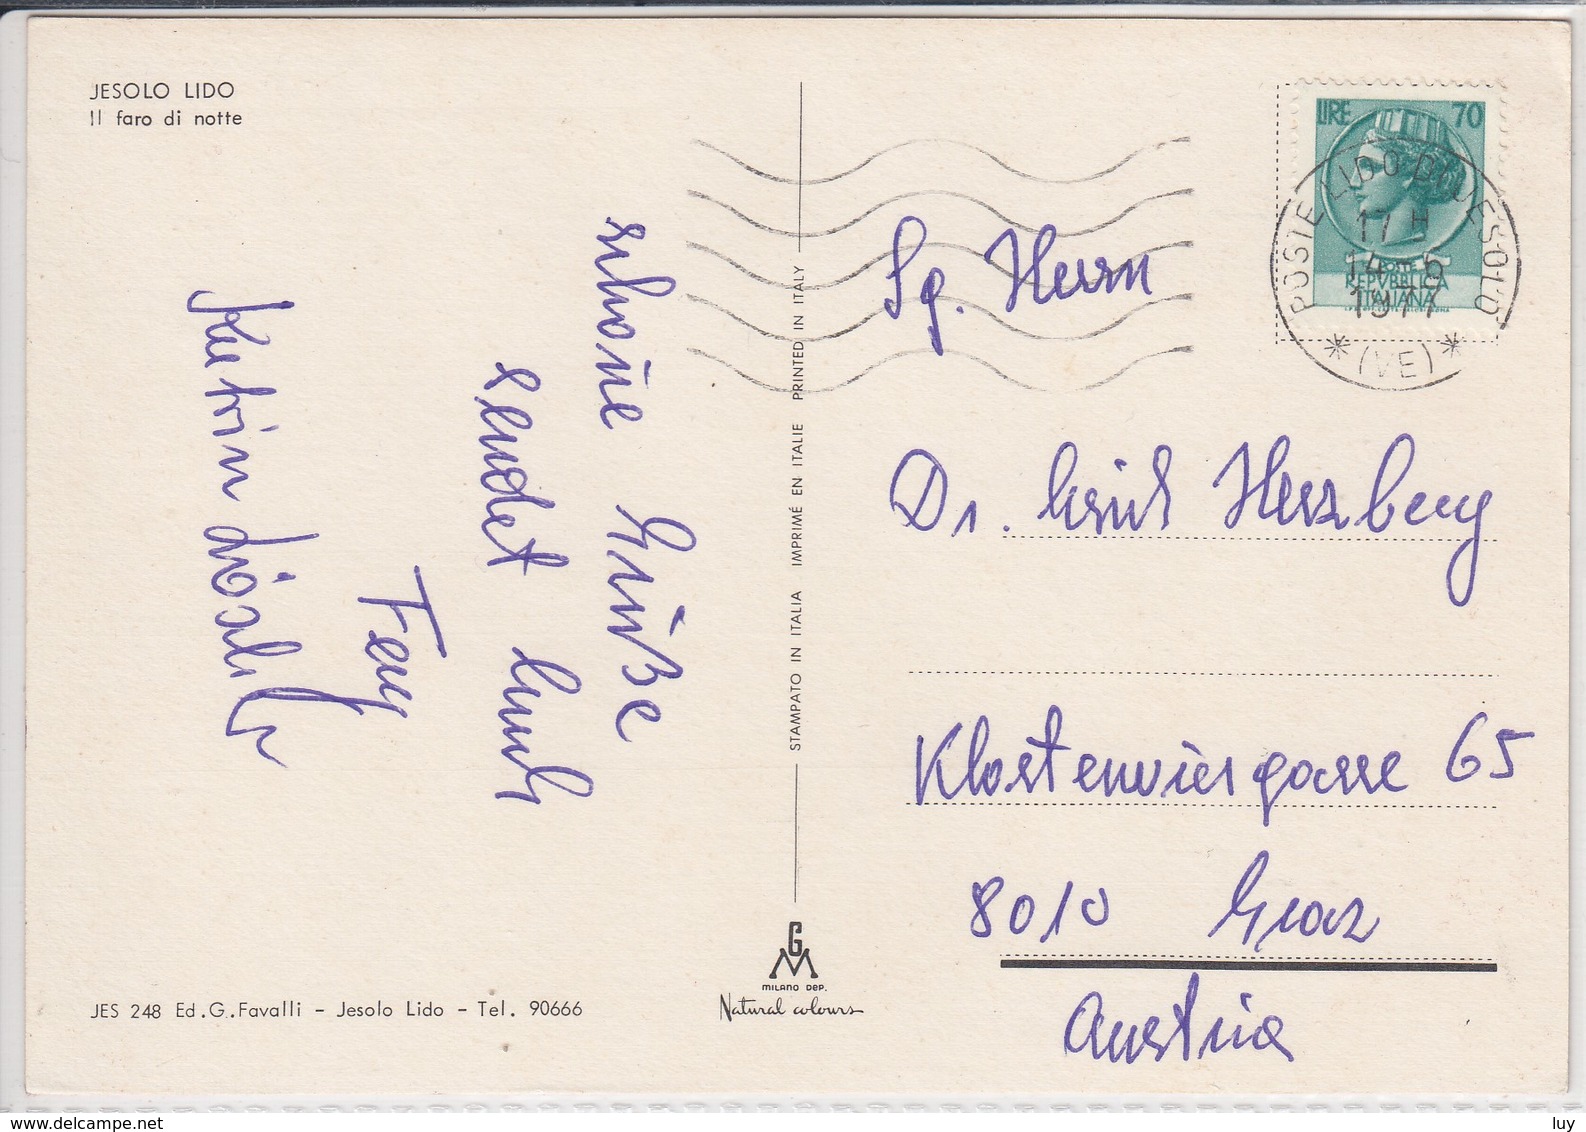 JESOLO LIDO
Il faro di notte
schöne Grüße
sendet Euch
Fam
STAMPATO IN ITALIA IMPRIMÉ EN ITALIE PRINTED IN ITALY
GM
MILANO DEP.
Natural colours
JES 248 Ed.G.Favalli - Jesolo Lido - Tel. 90666
LIRE 70
POSTE
REPVBBLICA
ITALIANA
POSTE LIDO DI JESOLO
17 H
14-5
1977
*(VE)*
Sg. Herrn
Dr. Erich Herzberg
Klosterwiesgasse 65
8010 Graz
Austria
www.delcampe.net
luy